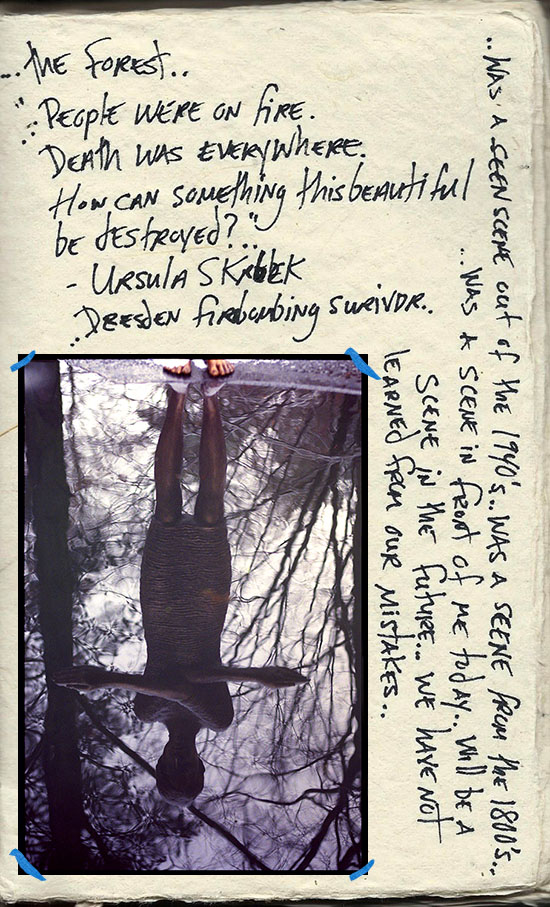 ...THE FOREST..
"..PEOPLE WERE ON FIRE.
DEATH WAS EVERYWHERE.
HOW CAN SOMETHING this bEAUTIFUL
bE dESTROYED?"..
- URSULA
..DRESDEN FIREbOMbING SURVIVOR.
..WAS A SCENE OUT OF THE 1940's..WAS A SCENE FROM THE 1800's..
...WAS A SCENE IN FRONT OF ME TODAY.. WILL bE A
SCENE IN THE FUTURE... WE HAVE NOT
LEARNED FROM OUR MISTAKES..